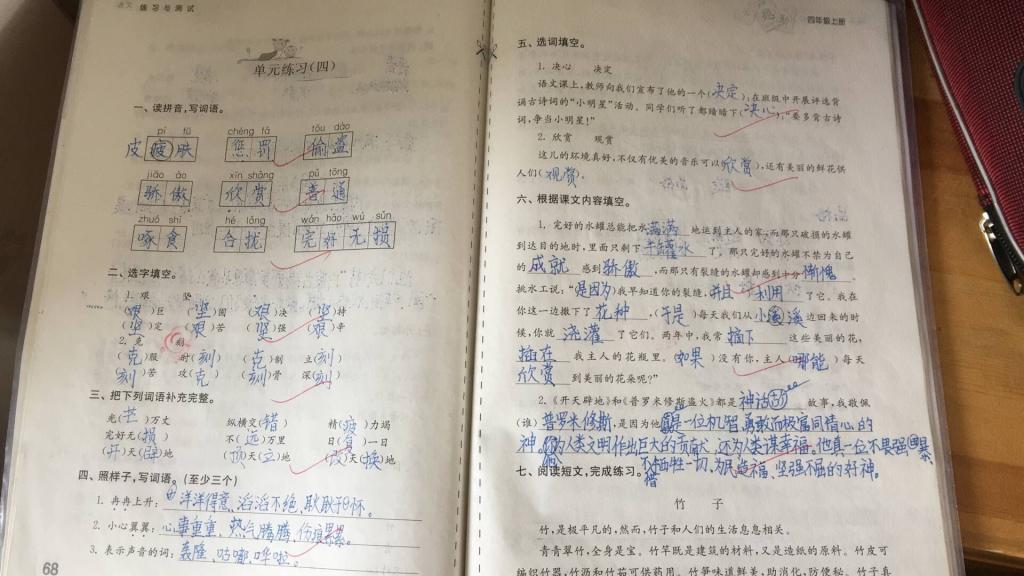 语文 练习与测试
单元练习(四)
一、读拼音,写词语。
pí fū chéng fá tōu dào
皮(疲)肤 惩罚 偷盗
jiāo ào xīn shǎng pǔ tōng
骄傲 欣赏 普通
zhuó shí hé lǒng wán hǎo wú sǔn
啄食 合拢 完好无损
二、选字填空。
1. 艰 坚
(艰)巨 (坚)固 (艰)决 (坚)持
(坚)定 (艰)苦 (坚)强 (艰)辛
2. 克 刻
(克)服 时(刻) (克)制 立(刻)
(刻)苦 攻(克) (刻)骨 深(刻)
三、把下列词语补充完整。
光(芒)万丈 纵横交(错) 精(疲)力竭
完好无(损) 不(远)万里 日(复)一日
(开)天(辟)地 (顶)天(立)地 (改)天(换)地
四、照样子,写词语。(至少三个)
1. 冉冉上升: 洋洋得意、滔滔不绝、耿耿于怀。
2. 小心翼翼: 心事重重、热气腾腾、伤痕累累。
3. 表示声音的词: 轰隆、咕嘟、哗啦。
68
四年级上册
五、选词填空。
1. 决心 决定
语文课上,教师向我们宣布了他的一个(决定):在班级中开展评选背
诵古诗词的“小明星”活动。同学们听了都暗暗下(决心):“要多背古诗
词,争当小明星!”
2. 欣赏 观赏
这儿的环境真好,不仅有优美的音乐可以(欣赏),还有美丽的鲜花供
人们(观赏)。
六、根据课文内容填空。
1. 完好的水罐总能把水满满地运到主人的家,而那只破损的水罐
到达目的地时,里面只剩下半罐水了。那只完好的水罐不禁为自己
的成就感到骄傲,而那只有裂缝的水罐却感到十分惭愧。
挑水工说:“(是因为)我早知道你的裂缝,并且利用了它。我在
你这一边撒下了花种,(于是)每天我们从小溪边回来的时
候,你就浇灌了它们。两年中,我常摘下这些美丽的花,
插在我主人的花瓶里。(如果)没有你,主人哪能每天
欣赏到美丽的花朵呢?”
2.《开天辟地》和《普罗米修斯盗火》都是神话故事,我敬佩
(谁)普罗米修斯,是因为他是一位机智勇敢而极富同情心的
神。他为人类文明作出巨大的贡献,还为人类谋幸福。他真一位不畏强暴、
不惜牺牲一切,为民造福、坚强不屈的好神。
七、阅读短文,完成练习。
竹 子
竹,是极平凡的,然而,竹子和人们的生活息息相关。
青青翠竹,全身是宝。竹竿既是建筑的材料,又是造纸的原料。竹皮可
编织竹器,竹沥和竹茹可供药用。竹笋味道鲜美,助消化,防便秘。竹子真